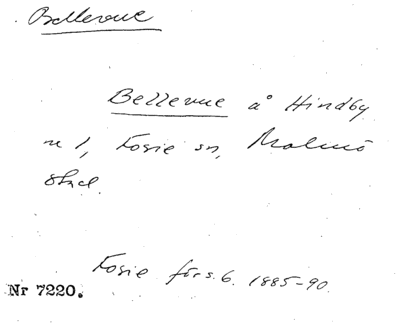 Bellevue
Bellevue å Hindby
n 1, Fosie sn, Malmö
stad.
Fosie förs. 6. 1885-90.
Nr 7220.